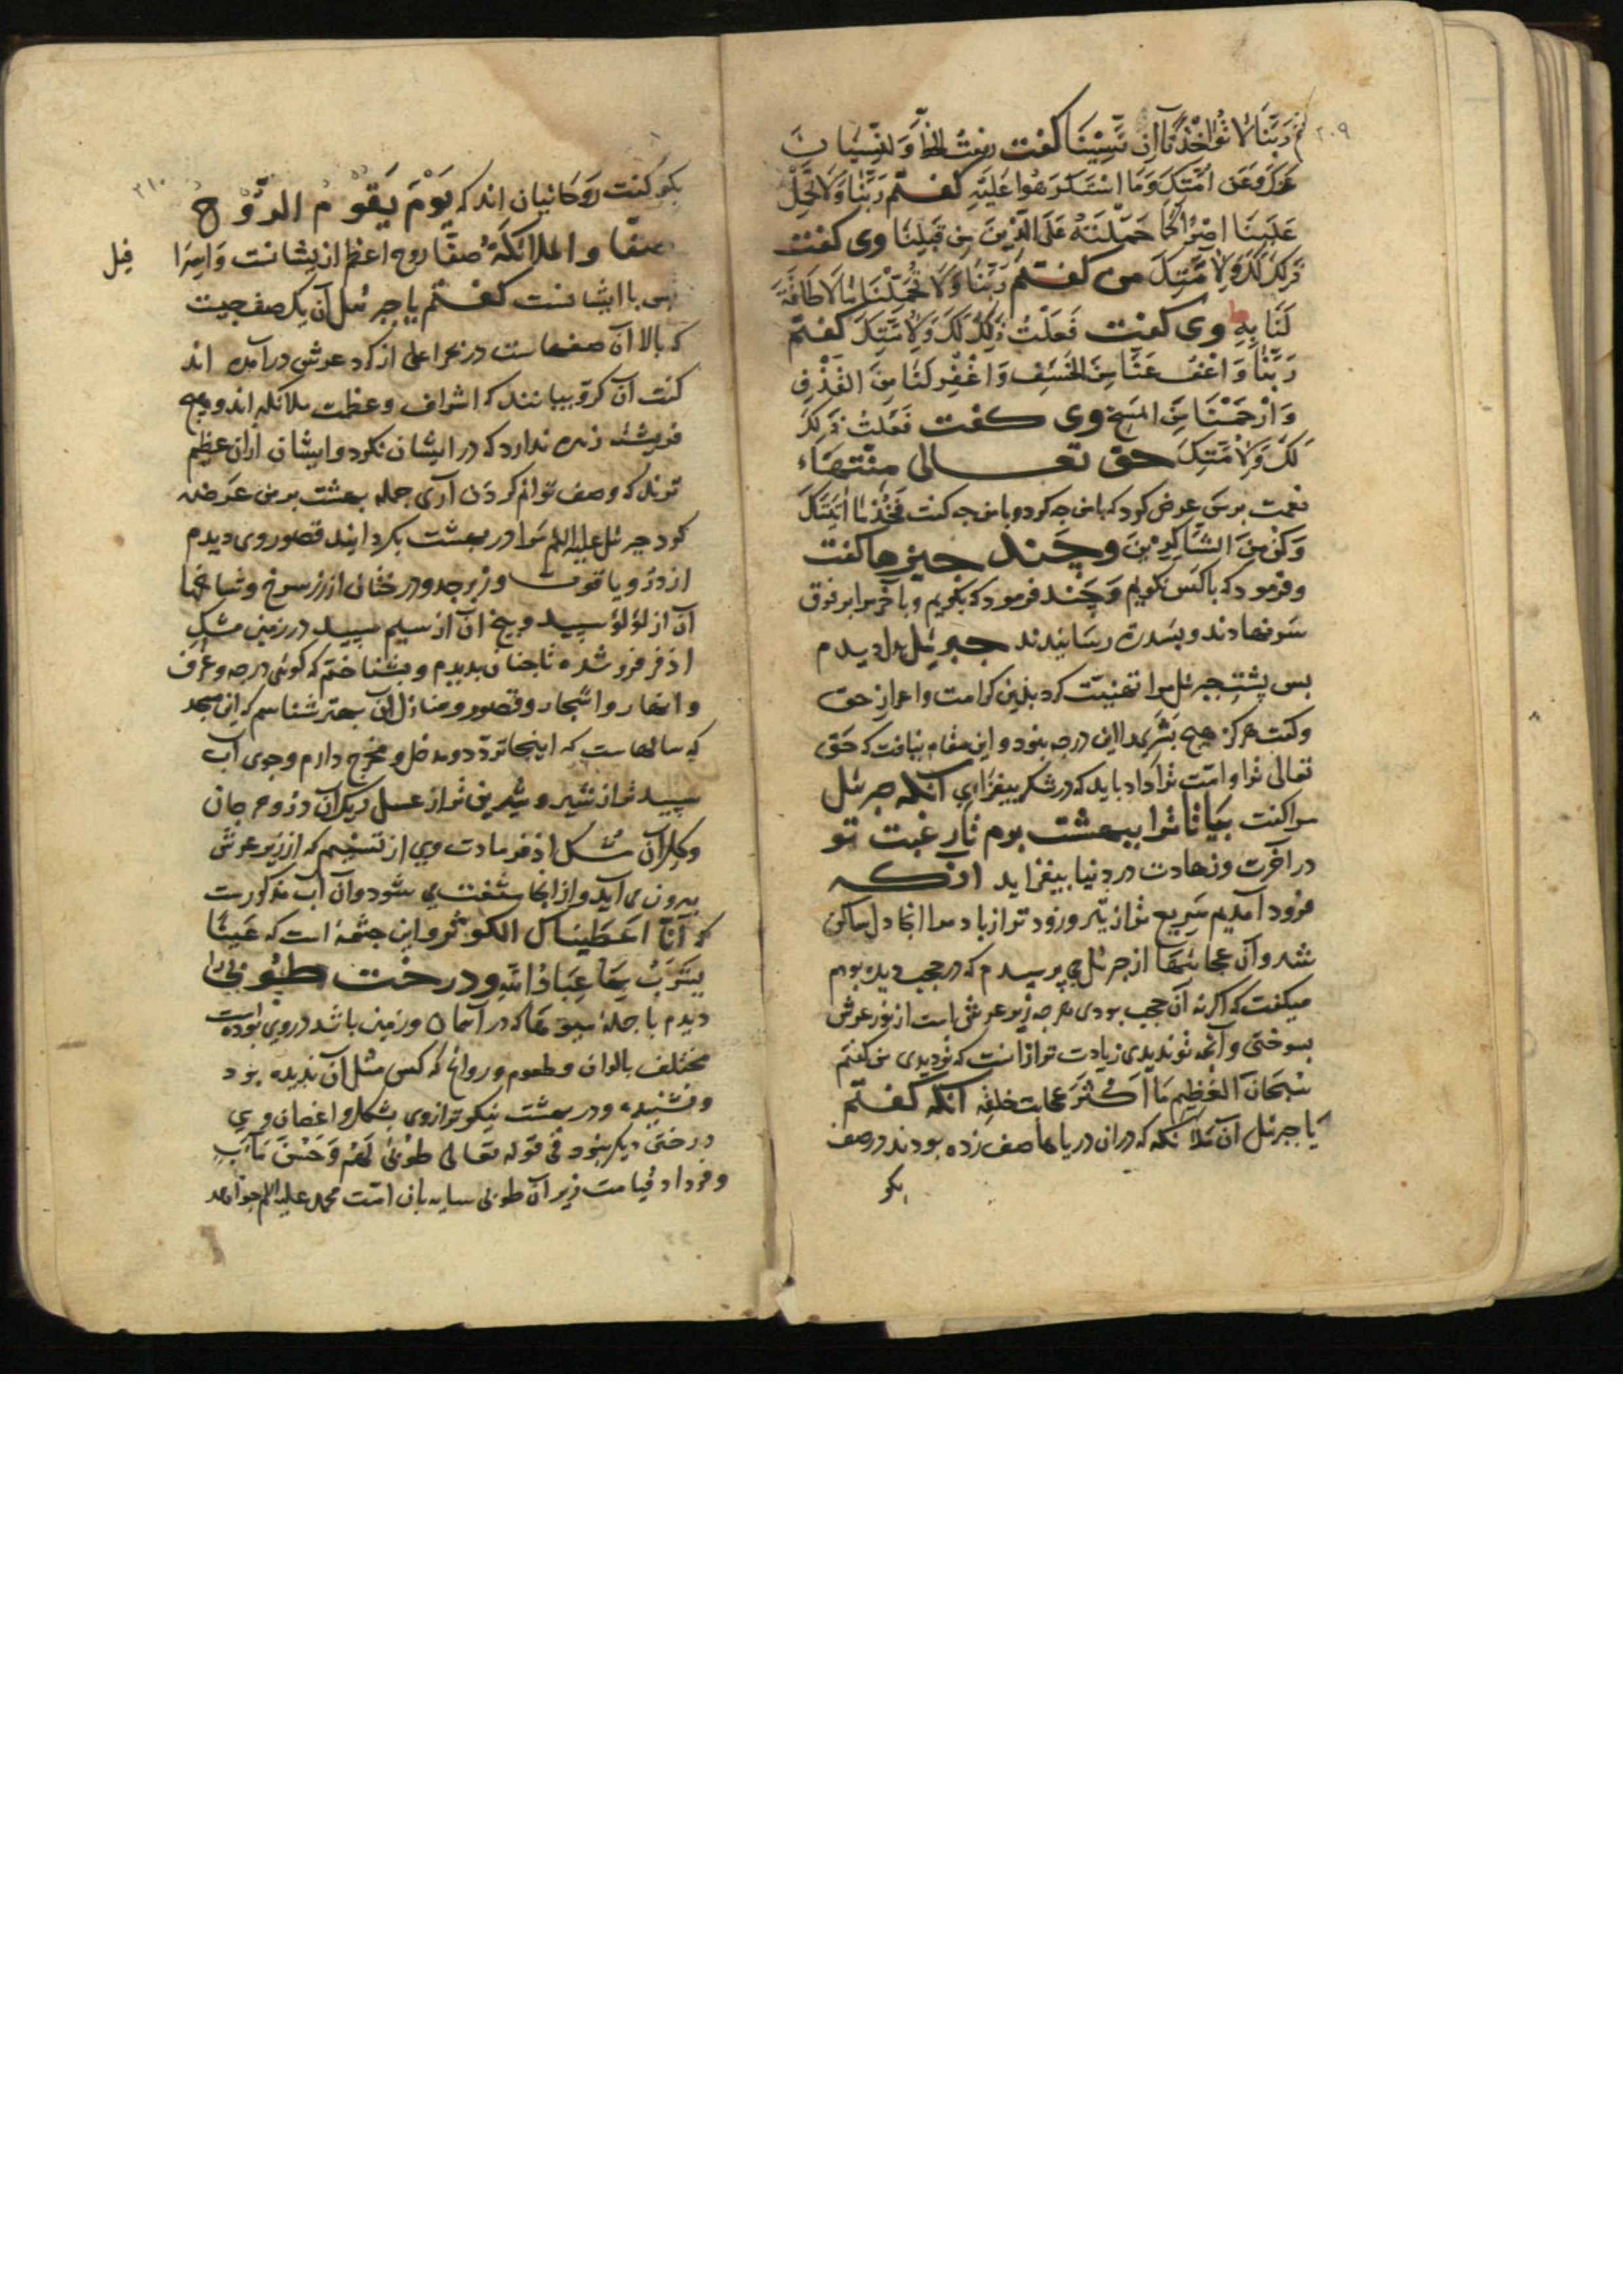 ۲۰۹
گفتم رَبَّنَا لَا تُؤَاخِذْنَا اِنْ نَسِیْنَا گفت رفعت الخطأ والنسیان
عنک و عَن امّتک وَمَا اسْتکرهوا عَلَیْهِ گفتم رَبَّنَا وَلَا تَحْمِلْ
عَلَیْنَا اِصْرًا کَمَا حَمَلْتَهُ عَلَی الَّذِیْنَ مِن قَبْلِنَا وی گفت
ذَلِکَ لَکَ وَلِاُمَّتِکَ من گفتم رَبَّنَا وَلَا تُحَمِّلْنَا مَا لَا طَاقَةَ
لَنَا بِهِ وی گفت فَعَلْتُ ذَلِکَ لَکَ وَلِاُمَّتِکَ گفتم
رَبَّنَا وَاعْفُ عَنَّا مِنَ الخَسْفِ وَاغْفِرْ لَنَا مِنَ القَذْفِ
وَارْحَمْنَا مِنَ المَسْخِ وی گفت فَعَلْتُ ذَلِکَ
لَکَ وَلِاُمَّتِکَ حق تعالی منتهاء
نعمت برمن عرض کرد که با من چه کرد و با من چه گفت فَخُذْ مَا اٰتَیْتُکَ
وَکُنْ مِنَ الشَّاکِرِیْنَ وچند چیزها گفت
وفرمود که با کس نکویم وچند فرمود که بکویم وبآخر مرا بر فوق
سرنهادند وبسدرة رسانیدند جبرئیل را دیدم
بس جبرئیل مرا تهنیت کرد بدین کرامت واعزاز حق
وکفت هرکز هیچ بشری را این درجه نبود واین مقام نیافت که حق
تعالی ترا وامّت ترا داد باید که در شکر بیفزای آنکه جبرئیل
مرا کفت بیا تا ترا ببهشت بوم تا رغبت تو
در آخرت وزهادت در دنیا بیفزاید آنکه
فرود آمدیم سریع تر از تیر وزود تر از باد مرا آنجا دل ساکن
شد وآن عجائبها از جبرئیل می پرسیدم که در حجب دیده بودم
میکفت که اکر نه آن حجب بودی هر چه زیر عرش است از نور عرش
بسوختی وآنچه تو ندیدی زیادت تر از آنست که تو دیدی من کفتم
سُبْحَانَ العَظِیْمِ مَا اَکْثَرَ عجائب خلقه آنکه گفتم
یَا جبرئیل آن ملائکه که در آن دریاها صف زده بودند در صف
بکو
۲۱۰
بکو کفت روحانیان اند که یَوْمَ یَقُوْمُ الرُّوْحُ
صفّا والملائکَةُ صفًّا روح اعظم از یشانست واسرا
فیل
با ایشانست گفتم یا جبرئیل آن یک صف چیست
که بالا آن صفهاست در بحر اعلی از کرد عرش در آمده اند
کفت آن کروبیانند که اشراف وعظمت ملائکه اند وهیچ
فریشته زهره ندارد که در ایشان نکرد وایشان از آن عظیم
ترند که وصف توانم کردن آری جمله بهشت بر من عرضه
کرد جبرئیل علیه السلم مرا در بهشت بکردانید قصور وی دیدم
از درّ ویاقوت وزبرجد ودرختان از زر سرخ وشاخها
آن از لؤلؤ سپید وبیخ آن از سیم سپید در زمین مشک
اذفر فرو شده تا چنان بدیدم وبشناختم که کوئی درجه وغرف
وانهار واشجار وقصور ومنازل آن بهتر شناسم که این مسجد
که سالهاست که اینجا تردّد ومدخل ومخرج دارم وجوی آب
سپید تر از شیر وشیرین تر از عسل ریک آن درّ ومرجان
وکل آن مشک اذفر مادت وی از تسنیم که از زیر عرش
بیرون می آید واز آنجا منشعب می شود وآن آب مذکورست
که اِنَّا اَعْطَیْنَاکَ الکوثر واین چشمه است که عَیْنًا
یَشْرَبُ بِهَا عِبَادُ اللّٰهِ ودرخت طُوْبٰی را
دیدم با جمله میوها که در آسمان وزمین باشد در وی بوده است
مختلف بالوان وطعوم وروائح که کس مثل آن ندیده بود
ونشنیده ودر بهشت نیکو تر از وی بشکل واغصان وی
درختی دیکر نبود فی قوله تعالی طُوْبٰی لَهُمْ وَحُسْنُ مَآبٍ
وفردا در قیامت زیر آن طوبی سایه بان امّت محمد علیه السلم خواهد